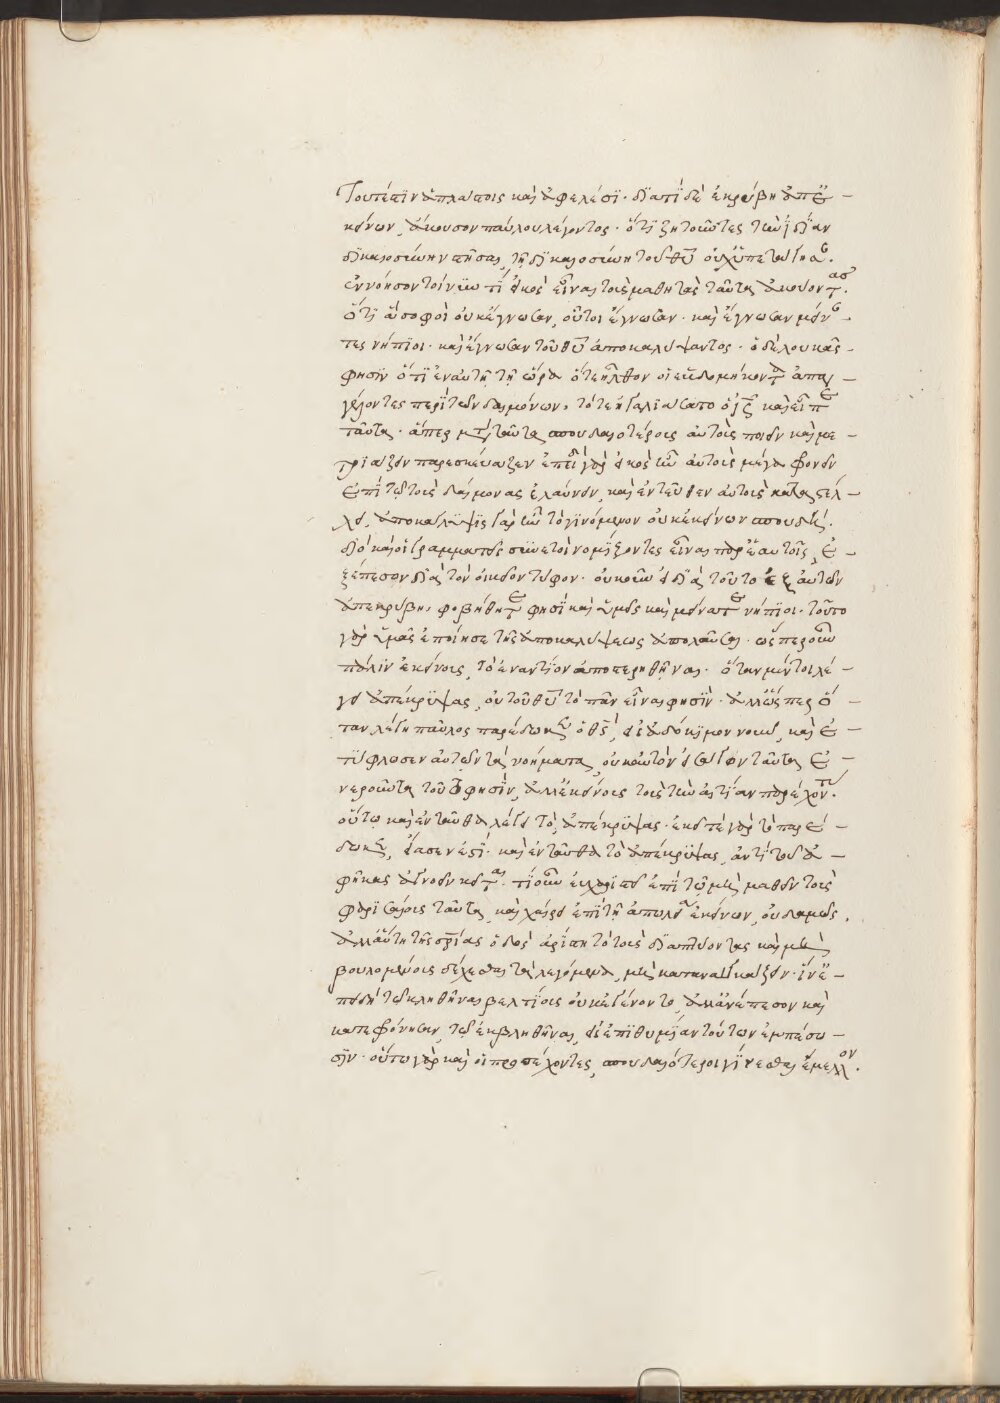 Τουτέστιν ἀπλάστοις καὶ ἀφελέσι· διατί δὲ ἐκρύβη ἀπ ἐ –
κείνων, ἄκουσον παύλου λέγοντος· ὅτι ζητοῦντες τὴν ἰδίαν
δικαιοσύνην στῆσαι, τῇ δικαιοσύνῃ τοῦ θυ οὐχ ὑπετάγησ.
ἐννόησον τοίνυν τί εἰκὸς εἶναι τοὺς μαθητὰς ταῦτα ἀκούοντας.
ὅτι ἃ σοφοὶ οὐκ ἔγνωσαν, οὗτοι ἔγνωσαν· καὶ ἔγνωσαν μένο –
τες νήπιοι· καὶ ἔγνωσαν τοῦ θυ ἀποκαλύψαντος· ὁ δὲ λουκᾶς –
φησὶν ὅτι ἐν αὐτῇ τῇ ὥρᾳ ὅτε ἦλθον οἱ ἑβδομήκοντα ἀπαγ –
γέλοντες περὶ τῶν δαιμόνων, τότε ἠγαλιάσατο ὁ ις καὶ εἶπε
ταῦτα· ἅπερ μετὰ ταῦτα σπουδαιοτέρους αὐτοὺς ποιῶν καὶ με –
τριάζειν παρεσκεύαζεν ἐπεὶ γὰρ εἰκὸς ἦν αὐτοὺς μέγα φρονεῖν
ἐπὶ τῷ τοὺς δαίμονας ἐλαύνειν, καὶ ἐντεῦθεν αὐτοὺς καταστέλ –
λει, ἀποκάλυψις γὰρ ἦν τὸ γινόμενον οὐκ ἐκείνων σπουδή.
διὸ καὶ οἱ γραμματεῖς συνετοὶ νομίζοντες εἶναι παρ ἑαυτοῖς, ἐ –
ξέπεσον διὰ τὸν οἰκεῖον τύφον· οὐκοῦν εἰ διὰ τοῦτο ἐξ αὐτῶν
ἀπεκρύβη, φοβήθητε φησὶ καὶ ὑμεῖς καὶ μένετε νήπιοι· τοῦτο
γὰρ ὑμᾶς ἐποίησε τῆς ἀποκαλύψεως ἀπολαῦσαι· ὥσπερ οὖν
πάλιν ἐκείνους, τὸ ἐναντίον ἀποστερηθῆναι· ὅταν μέντοι λέ –
γει ἀπέκρυψας, οὐ τοῦ θυ τὸ πᾶν εἶναι φησὶν· ἀλλ ὥσπερ ὅ –
ταν λέγῃ παῦλος παρέδωκεν ὁ θς, εἰς ἀδόκιμον νοῦν, καὶ ἐ –
τύφλωσεν αὐτῶν τὰ νοήματα, οὐκ αὐτὸν εἰσάγων ταῦτα ἐ –
νεργοῦντα τοῦτό φησιν, ἀλλ ἐκείνους τοὺς τὴν αἰτίαν παρέχοντ.
οὕτω καὶ ἐνταῦθα λέγει τὸ, ἀπέκρυψας· ἐκεῖ τε γὰρ τὸ παρέ –
δωκεν, εἴασεν ἐστὶ· καὶ ἐνταῦθα τὸ ἀπέκρυψας, ἀντὶ τοῦ ἀ –
φῆκας ἀγνοεῖν κεῖται· τί οὖν εὐχαριστεῖ ἐπὶ τῷ μὴ μαθεῖν τοὺς
φαρισαίους ταῦτα, καὶ χαίρει ἐπὶ τῇ ἀπωλείᾳ ἐκείνων, οὐδαμῶς,
ἀλλ αὕτη τῆς σριας ὁδὸς ἀρίστη τὸ τοὺς διαπτύοντας καὶ μὴ
βουλομένους δέχεσθαι τὰ λεγόμενα, μὴ καταναγκάζειν· ἵν ἐ –
πειδὴ τῷ κληθῆναι βελτίους οὐκ ἐγένοντο, ἀλλ ἀνέπεσον καὶ
κατεφρόνησαν, τῷ ἐκβληθῆναι, εἰς ἐπιθυμίαν τούτων ἐμπέσω –
σιν· οὕτω γὰρ καὶ οἱ προσέχοντες, σπουδαιότεροι γίνεσθαι ἔμελλον.